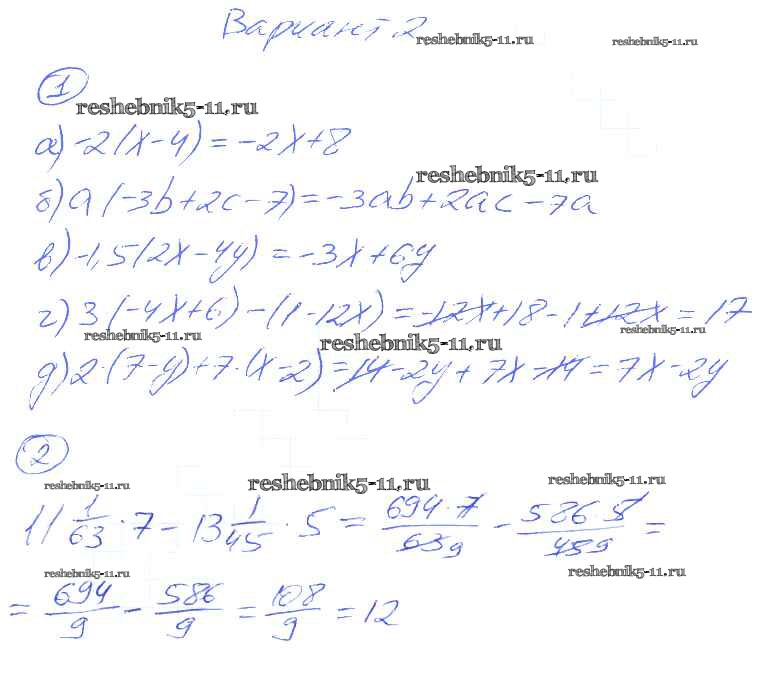 Вариант 2
reshebnik5-11.ru
reshebnik5-11.ru
1
reshebnik5-11.ru
а) -2(x-4) = -2x+8
reshebnik5-11.ru
б) a(-3b+2c-7) = -3ab+2ac-7a
в) -1,5(2x-4y) = -3x+6y
г) 3(-4x+6)-(1-12x) = -12x+18-1+12x = 17
reshebnik5-11.ru
reshebnik5-11.ru
reshebnik5-11.ru
д) 2·(7-y)+7·(x-2) = 14-2y+7x-14 = 7x-2y
2
reshebnik5-11.ru
reshebnik5-11.ru
reshebnik5-11.ru
11 1/63 · 7 - 13 1/45 · 5 = 694·7/63 9 - 586·5/45 9 =
reshebnik5-11.ru
reshebnik5-11.ru
= 694/9 - 586/9 = 108/9 = 12